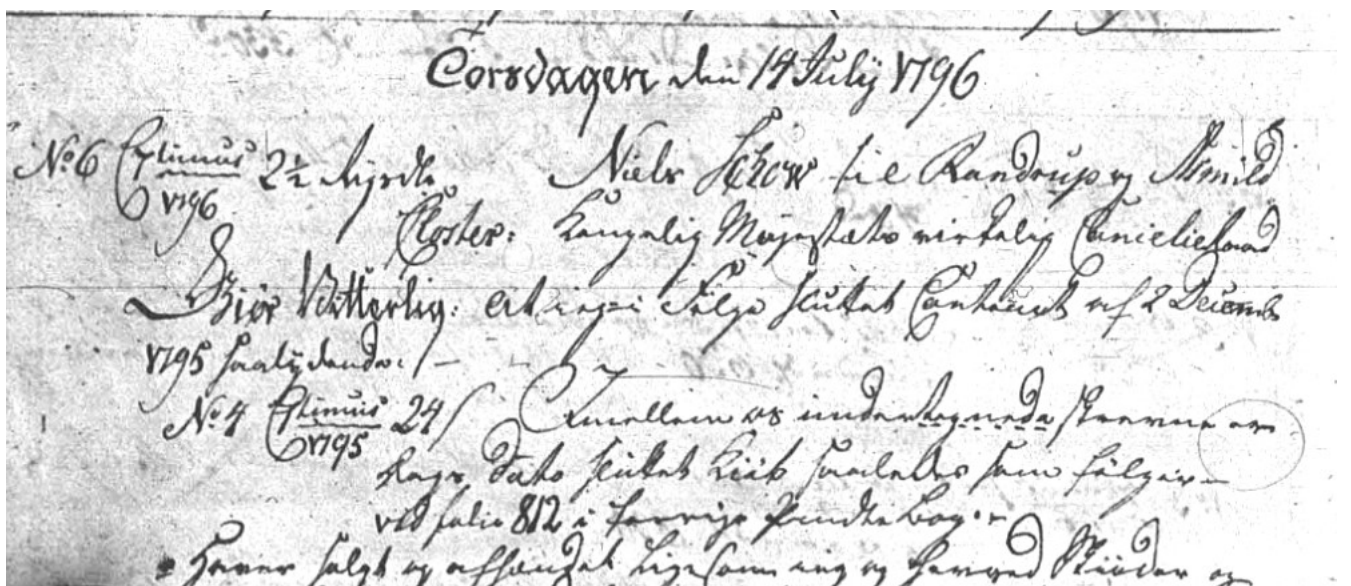 Torsdagen den 14 July 1796
No. 6 Cstimus 2½ Rigsdlr Niels Schow til Randrup og Asmild
1796
Closter: Kongelig Majestæts virkelig Cancelieraad
Giør Vitterlig: at ieg i Følge sluttet Contract af 2 Decemb
1795 saalydende:/
No. 4 Cstimus 24 s Imellem os undertegnede skrevne er
1795
Dags Dato sluttet Kiøb saaledes som følger
vid folio 812 i forrige Pandtebog
Haver solgt og afhændet ligesom ieg og herved Skiøder og